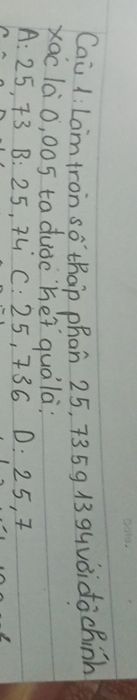 Câu 1: Làm tròn số thập phân 25,7359 1394 với độ chính
xác là 0,005 ta được kết quả là:
A: 25,73 B: 25,74 C: 25,736 D. 25,7